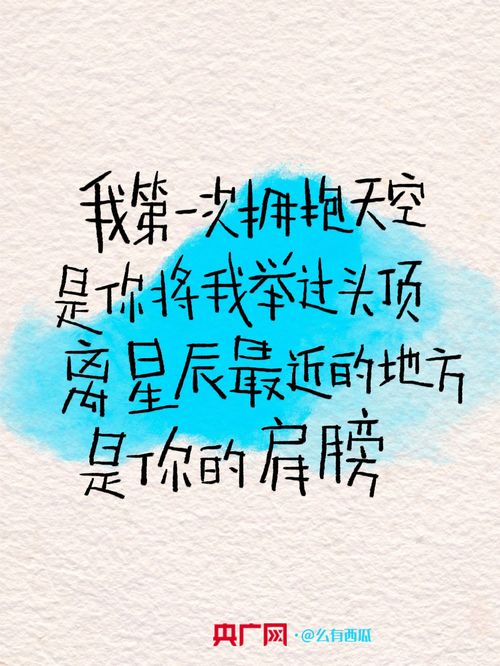 我第一次拥抱天空
是你将我举过头顶
离星辰最近的地方
是你的肩膀
央广网·@么有西瓜